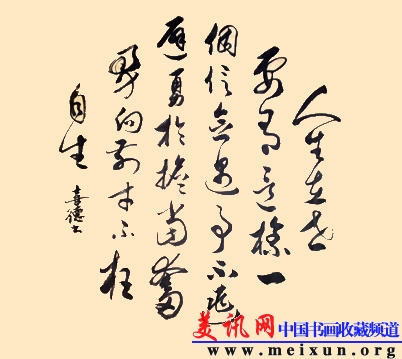 人生在世
要有這樣一
個信念遇事不逃
避勇於擔當奮
勇向前才不枉
自生
喜德书
美讯网 中国书画收藏频道
www.meixun.org